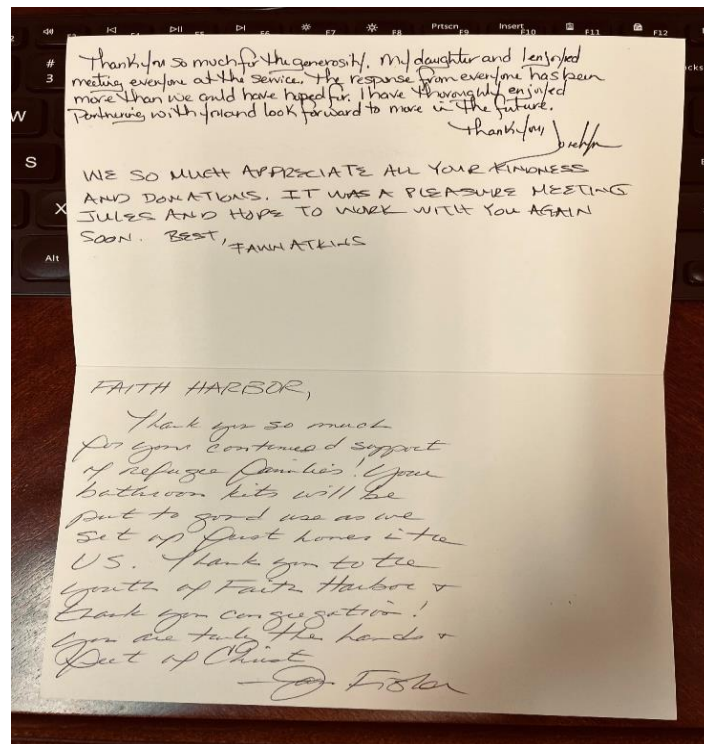 PrtScn Insert
F8 F9 F10 F11 F12
#
3
W
S
X
Alt
Thank you so much for the generosity. My daughter and I enjoyed
meeting everyone at the service. The response from everyone has been
more than we could have hoped for. I have thoroughly enjoyed
Partnering with you and look forward to more in the future.
Thank you,
WE SO MUCH APPRECIATE ALL YOUR KINDNESS
AND DONATIONS. IT WAS A PLEASURE MEETING
JULES AND HOPE TO WORK WITH YOU AGAIN
SOON. BEST, FAWN ATKINS
FAITH HARBOR,
Thank you so much
for your continued support
of refugee families! Your
bathroom kits will be
put to good use as we
set up first homes in the
US. Thank you to the
youth of Faith Harbor &
thank you congregation!
you are truly the hands &
feet of Christ